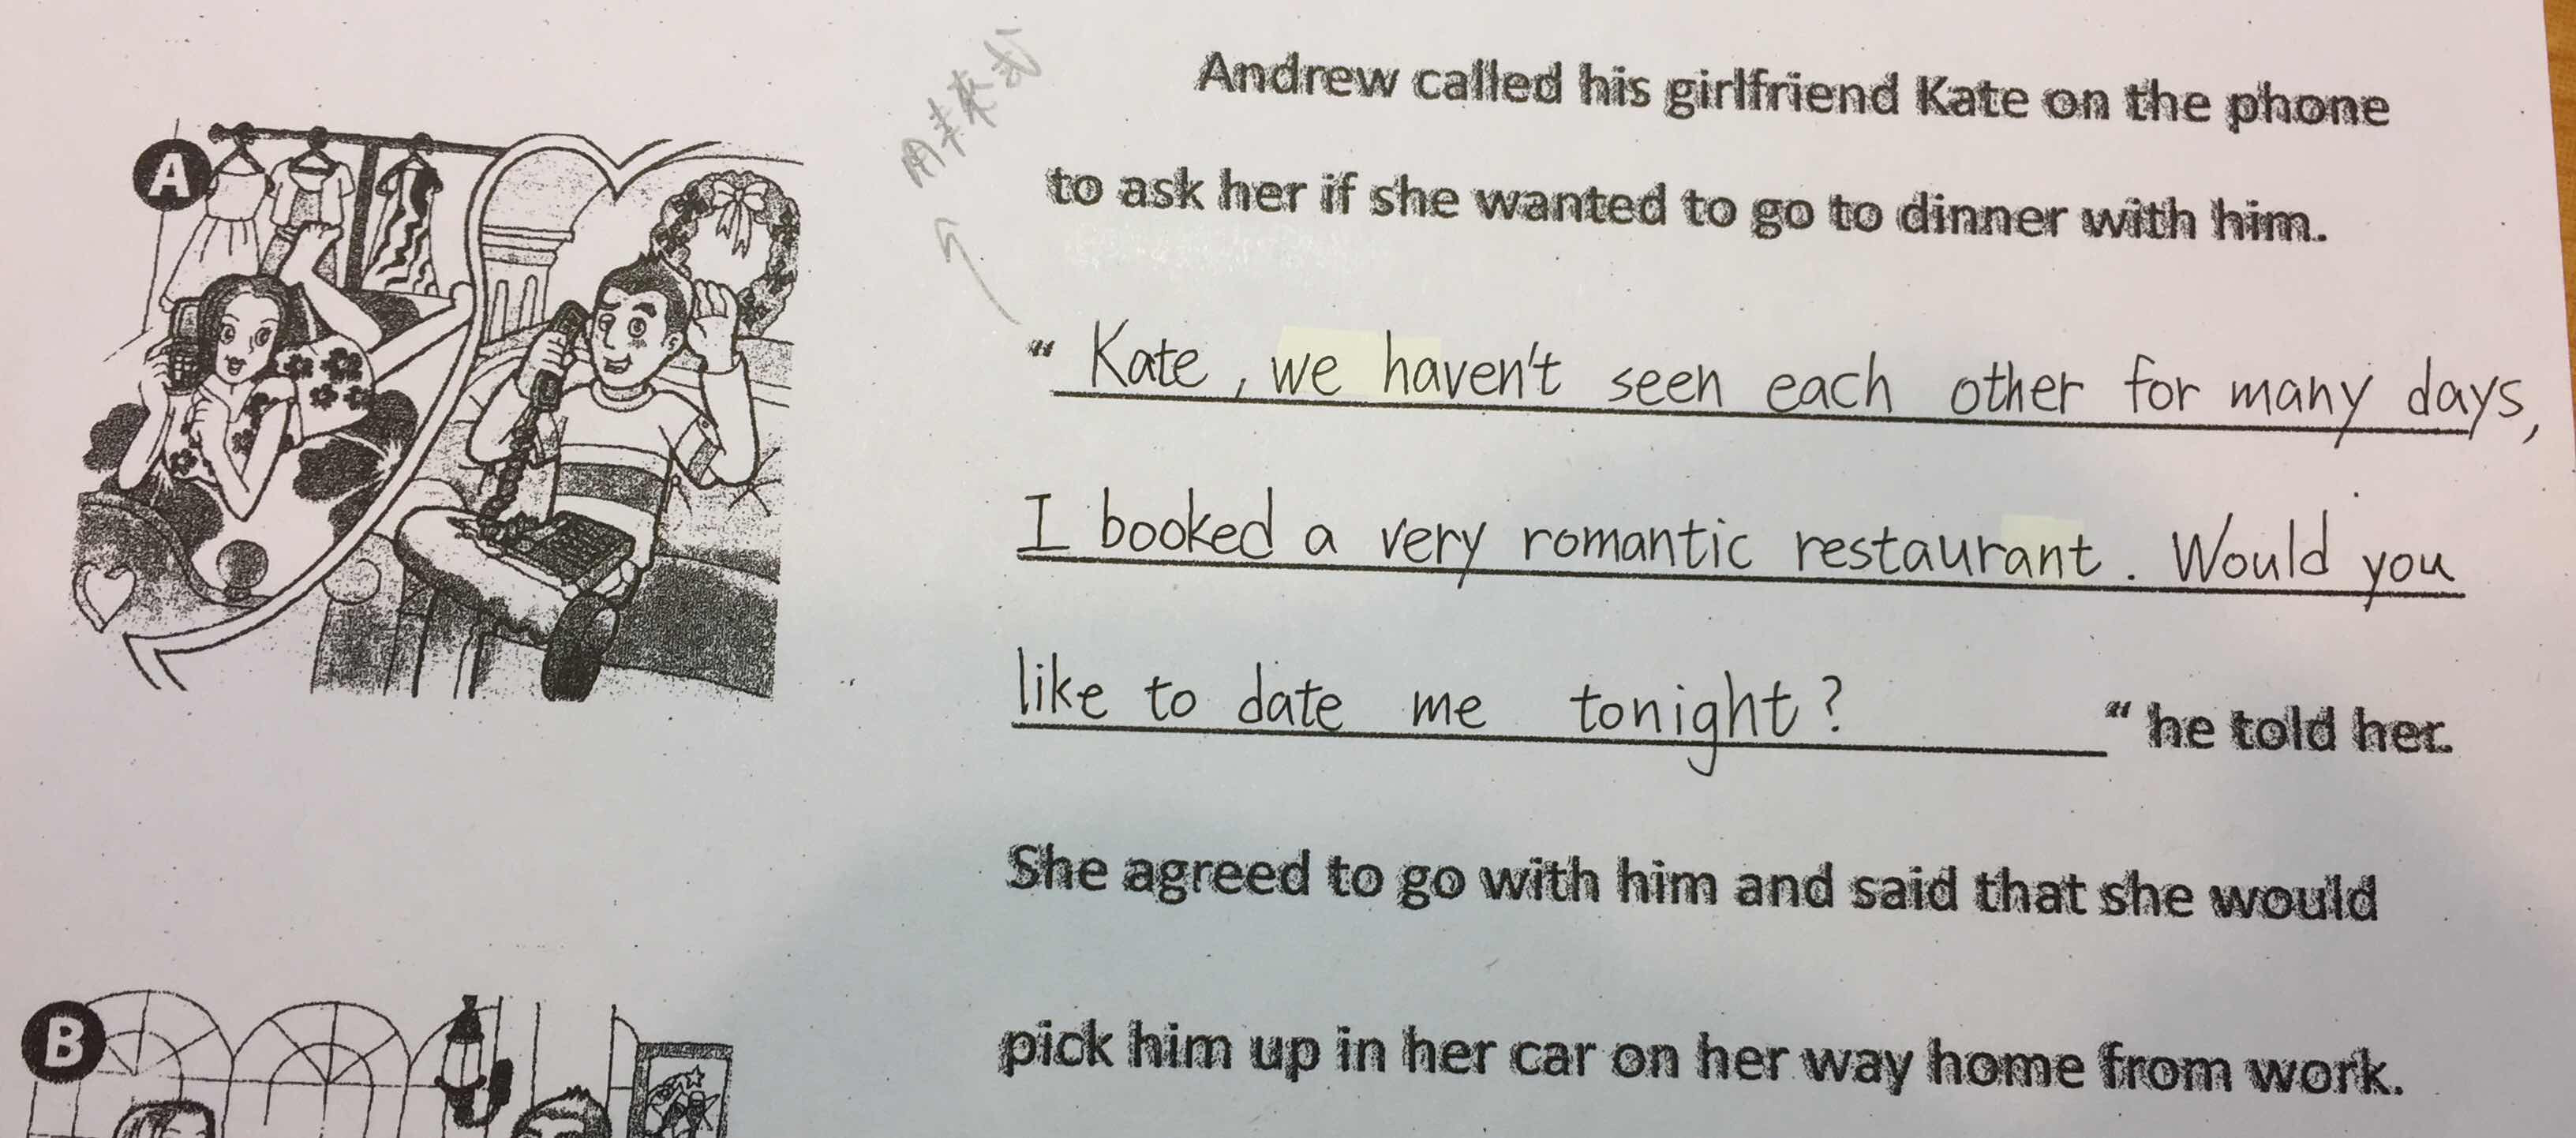 A
用未來式
Andrew called his girlfriend Kate on the phone
to ask her if she wanted to go to dinner with him.
“ Kate , we haven't seen each other for many days,
I booked a very romantic restaurant. Would you
like to date me tonight? “ he told her.
She agreed to go with him and said that she would
pick him up in her car on her way home from work.
B